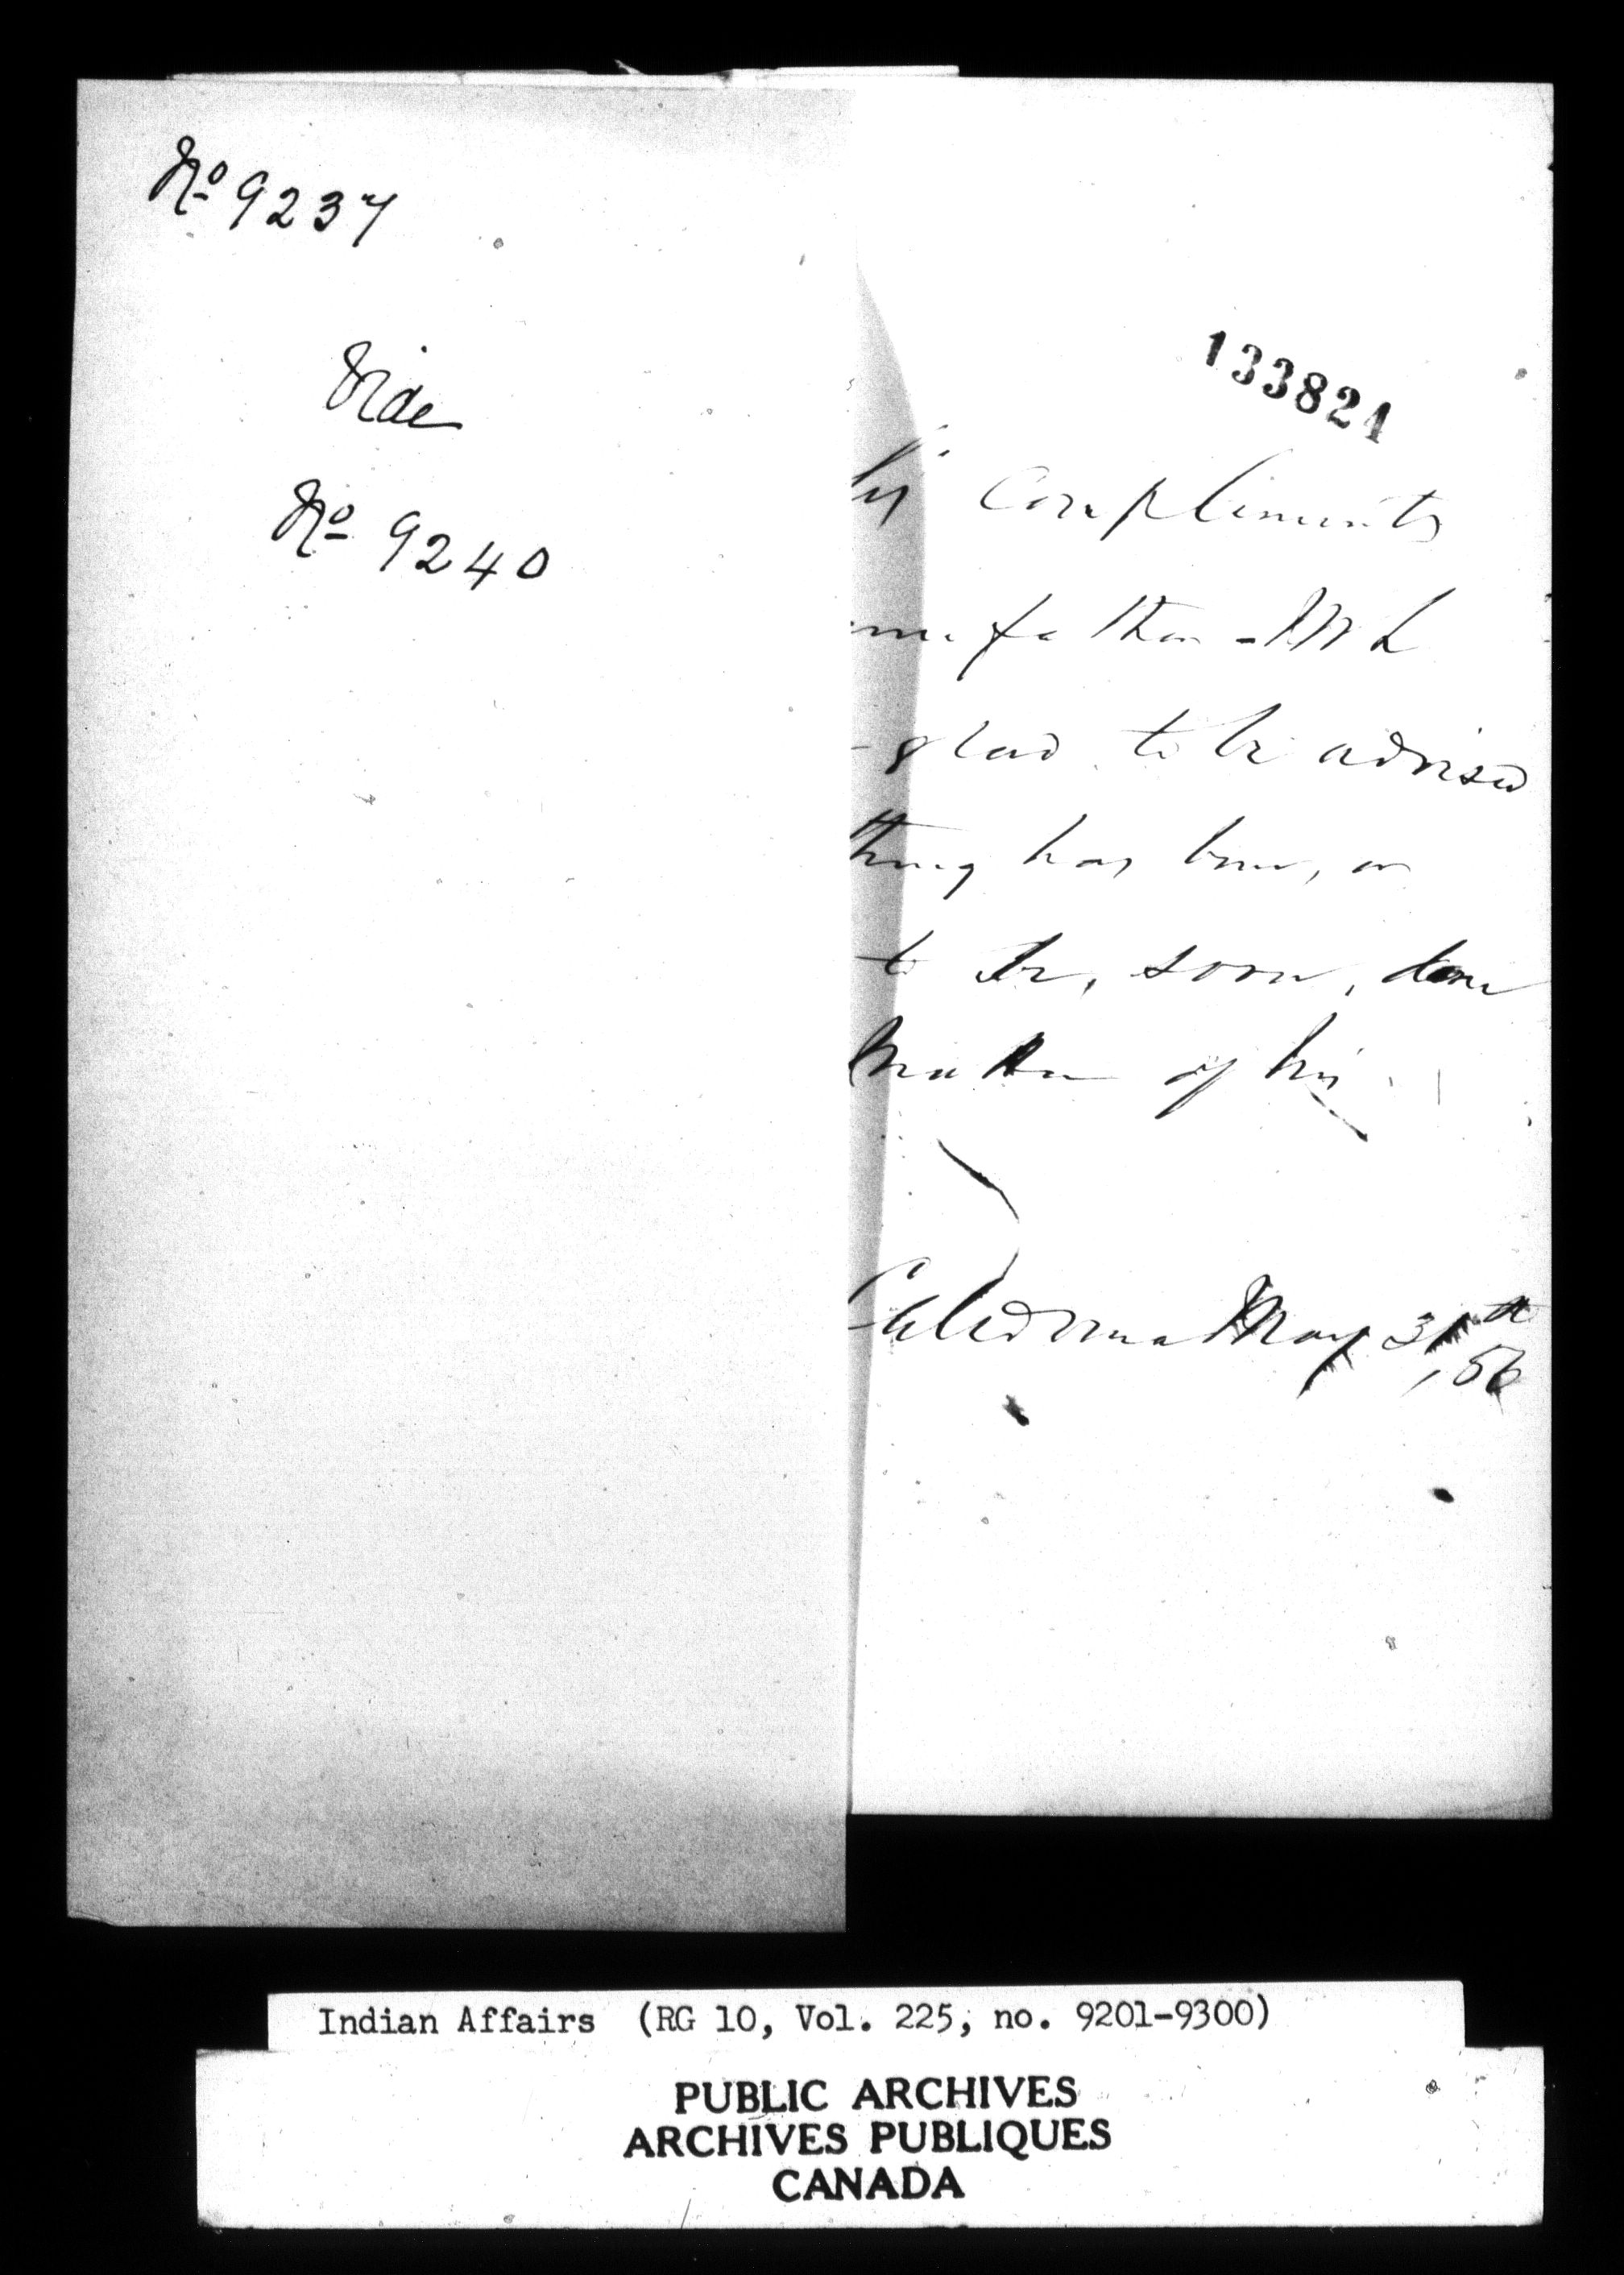 No 9237
Vide
No 9240
133824
his Compliments
- Mr L
glad to be advised
thing has been, or
to be, soon, done
matter of his
Caledonia May 31th
, 56
Indian Affairs (RG 10, Vol. 225, no. 9201-9300)
PUBLIC ARCHIVES
ARCHIVES PUBLIQUES
CANADA